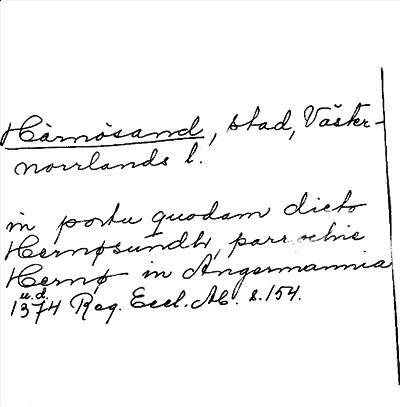 Härnösand, stad, Väster-
norrlands l.
in portu quodam dicto
Hernøsundh, parrochie
Hernø in Angermannia
u.d.
1374 Reg. Eccl. Ab. s. 154.